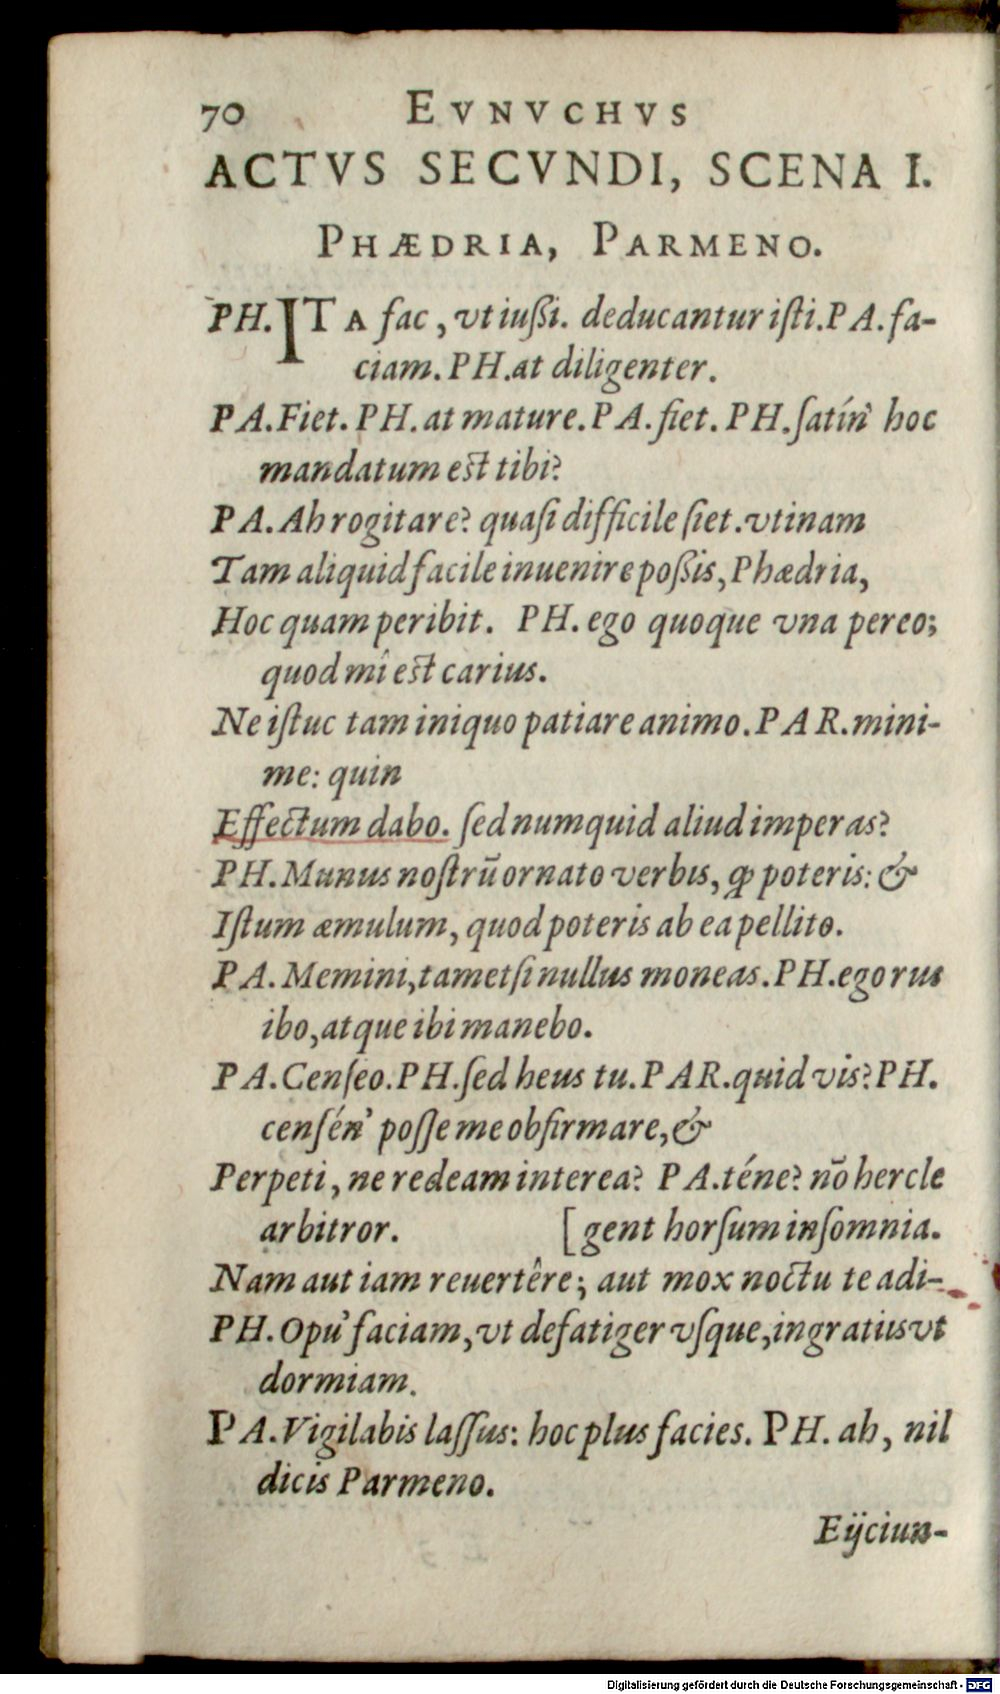 70 EVNVCHVS
ACTVS SECVNDI, SCENA I.
PHÆDRIA, PARMENO.
PH. ITA fac, vt iußi. deducantur iſti. PA. fa-
ciam. PH. at diligenter.
PA. Fiet. PH. at mature. PA. fiet. PH. ſatín' hoc
mandatum est tibi?
PA. Ah rogitare? quaſi difficile ſiet. vtinam
Tam aliquid facile inuenire poßis, Phædria,
Hoc quam peribit. PH. ego quoque vna pereo;
quod mî est carius.
Ne iſtuc tam iniquo patiare animo. PAR. mini-
me: quin
Effectum dabo. ſed numquid aliud imperas?
PH. Munus noſtrū ornato verbis, ꝙ poteris: &
Iſtum æmulum, quod poteris ab ea pellito.
PA. Memini, tametſi nullus moneas. PH. ego rus
ibo, atque ibi manebo.
PA. Cenſeo. PH. ſed heus tu. PAR. quid vis? PH.
cenſén' poſſe me obfirmare, &
Perpeti, ne redeam interea? PA. téne? nō hercle
arbitror. [gent horſum inſomnia.
Nam aut iam reuertêre; aut mox noctu te adi-
PH. Opu' faciam, vt defatiger vſque, ingratiis vt
dormiam.
PA. Vigilabis laſſus: hoc plus facies. PH. ah, nil
dicis Parmeno.
Eijciun-
Digitalisierung gefördert durch die Deutsche Forschungsgemeinschaft - DFG